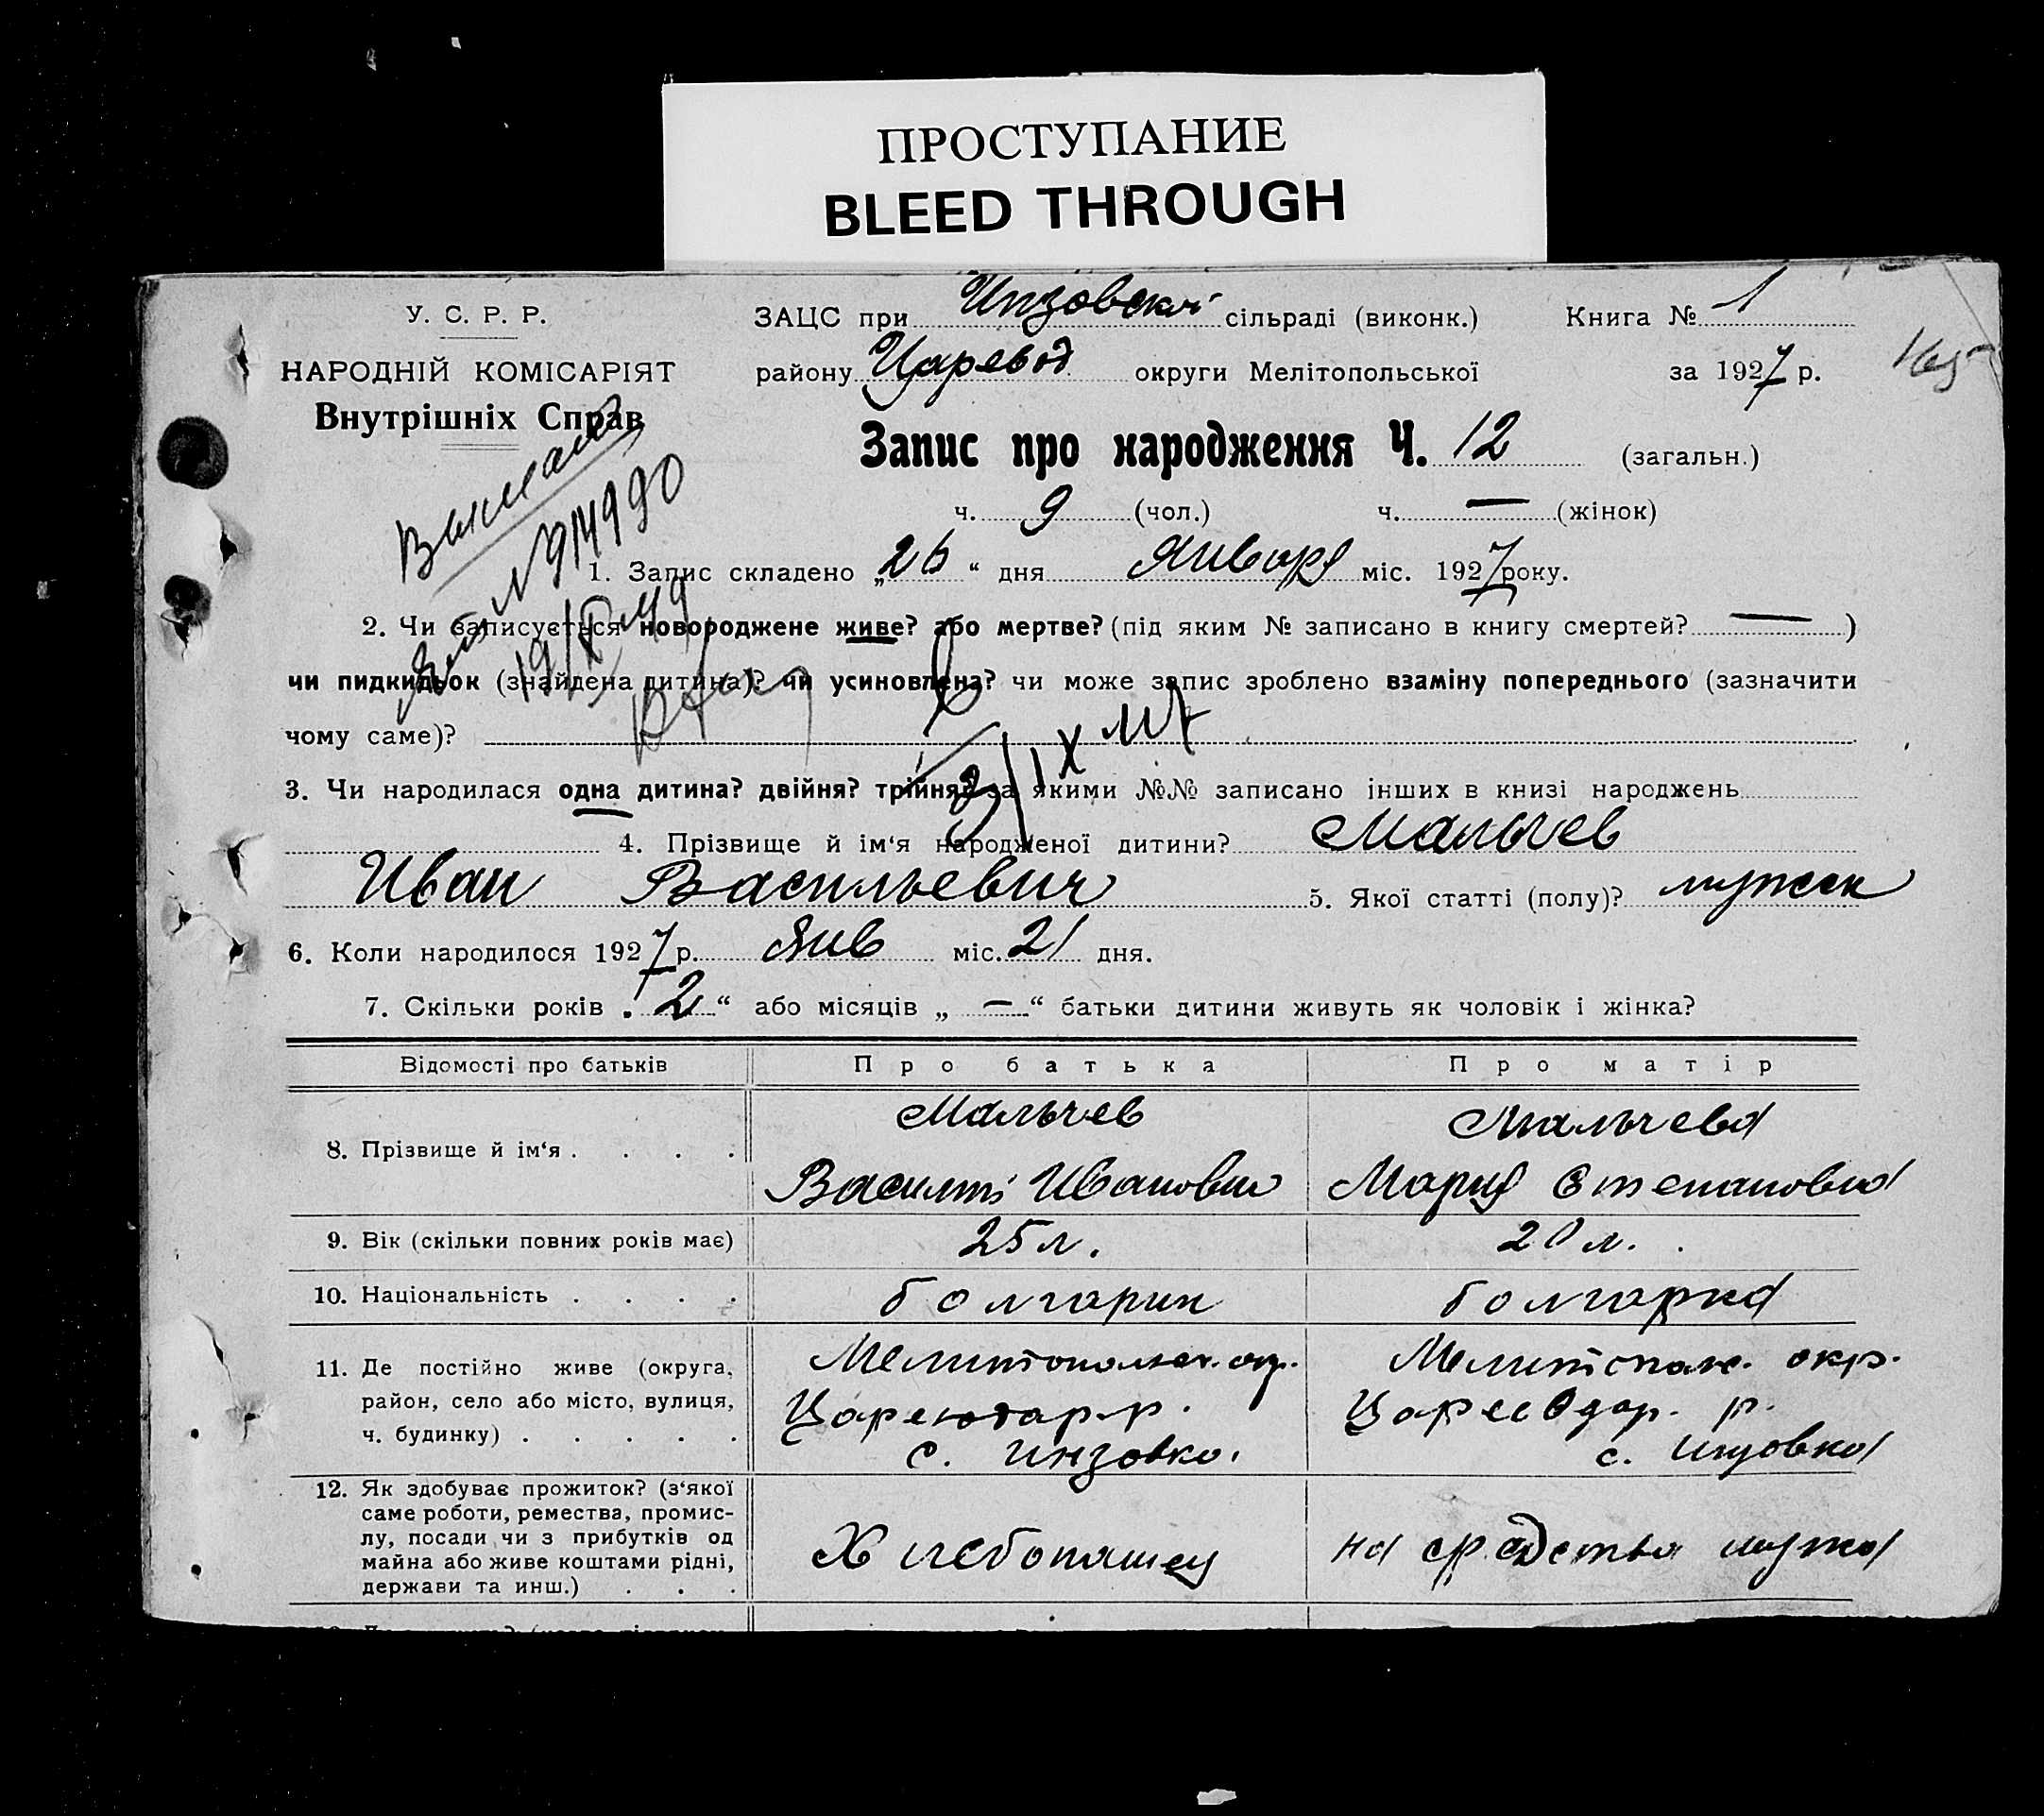 ПРОСТУПАНИЕ
BLEED THROUGH
У. С. Р. Р.
НАРОДНІЙ КОМІСАРІЯТ
Внутрішніх Справ
ЗАЦС при Инзовской сільраді (виконк.) Книга № 1
району Царевод округи Мелітопольської за 1927 р.
165
Запис про народження Ч. 12 (загальн.)
ч. 9 (чол.) ч. — (жінок)
№ 914990
1. Запис складено „26“ дня Января міс. 1927 року.
2. Чи записується новороджене живе? або мертве? (під яким № записано в книгу смертей? — )
чи пидкидьок (знайдена дитина)? чи усиновлена? чи може запис зроблено взаміну попереднього (зазначити
чому саме)?
3. Чи народилася одна дитина? двійня? трійня? за якими №№ записано інших в книзі народжень
4. Прізвище й ім‘я народженої дитини? Мальчев
Иван Васильевич 5. Якої статті (полу)? мужск
6. Коли народилося 1927 р. Янв міс. 21 дня.
7. Скільки років „2“ або місяців „ — “ батьки дитини живуть як чоловік і жінка?
Відомості про батьків Про батька Про матір
8. Прізвище й ім‘я . . . . Мальчев Мальчева
Василий Иванович Мария Степановна
9. Вік (скільки повних років має) 25 л. 20 л.
10. Національність . . . . болгарин болгарка
11. Де постійно живе (округа, Мелитопольск. окр. Мелитопол. окр.
район, село або місто, вулиця, р. Цареводар. р.
ч. будинку) . . . . . с. Инзовка. с. Инзовка
12. Як здобуває прожиток? (з‘якої
саме роботи, ремества, промис-
лу, посади чи з прибутків од
майна або живе коштами рідні, Хлебопашец на средства мужа
держави та инш.) . . .